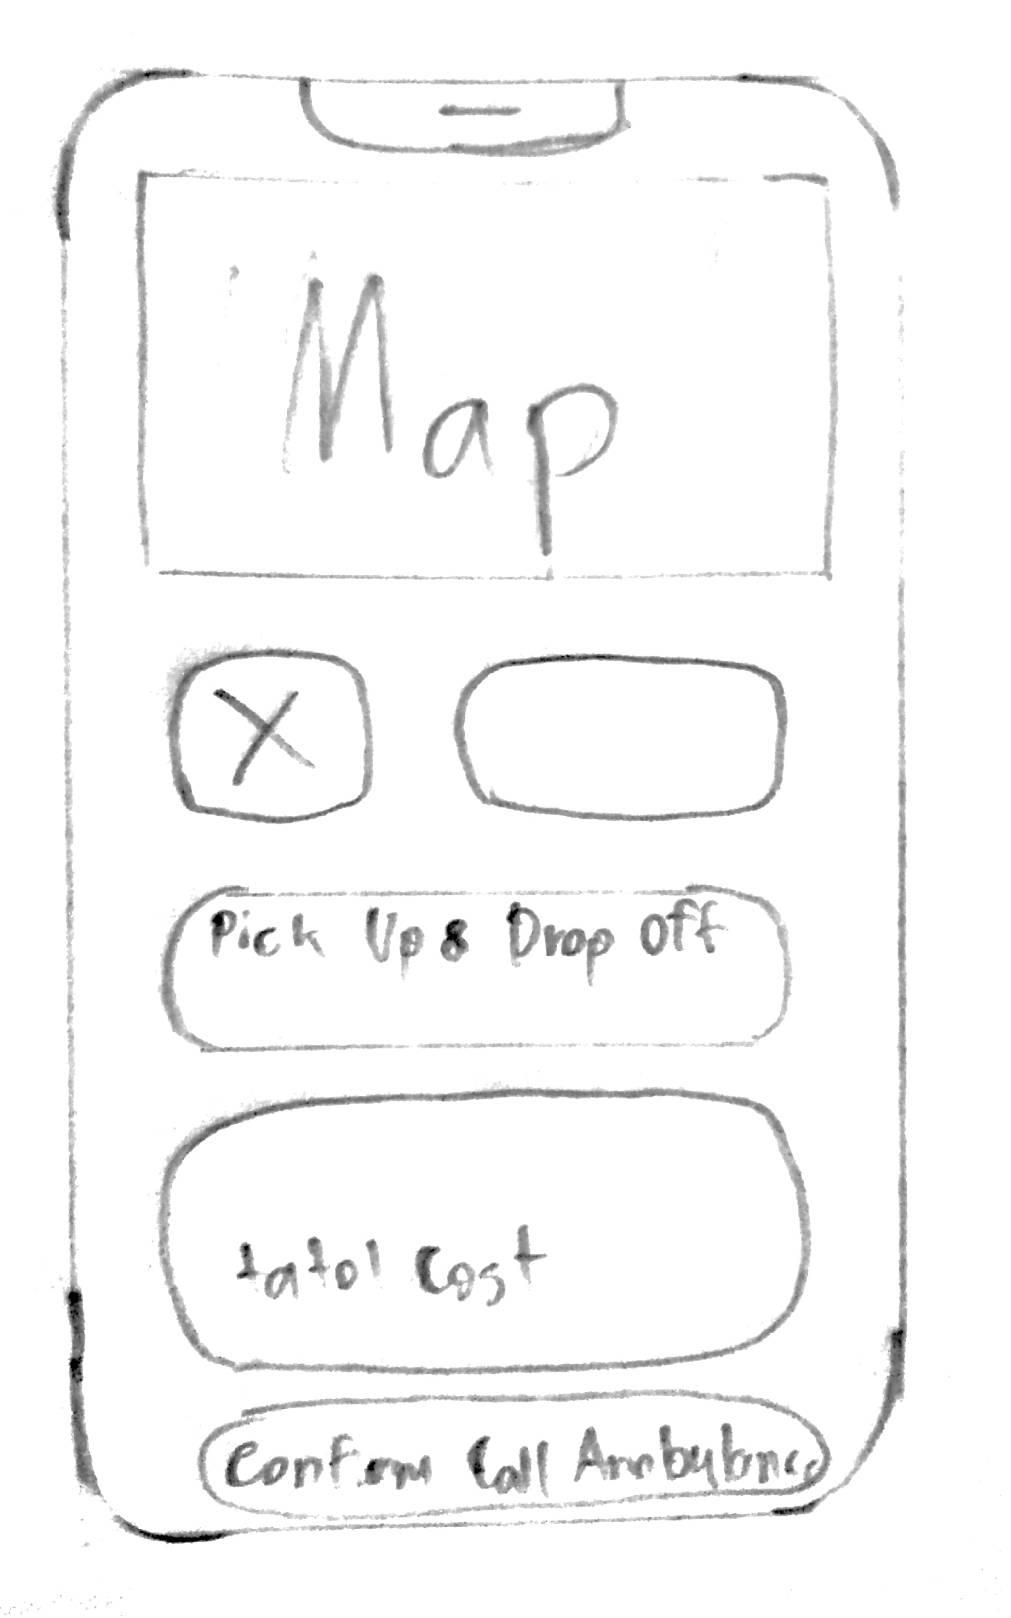 Map
X
Pick Up & Drop Off
tatol Cost
Confirm Call Ambulance